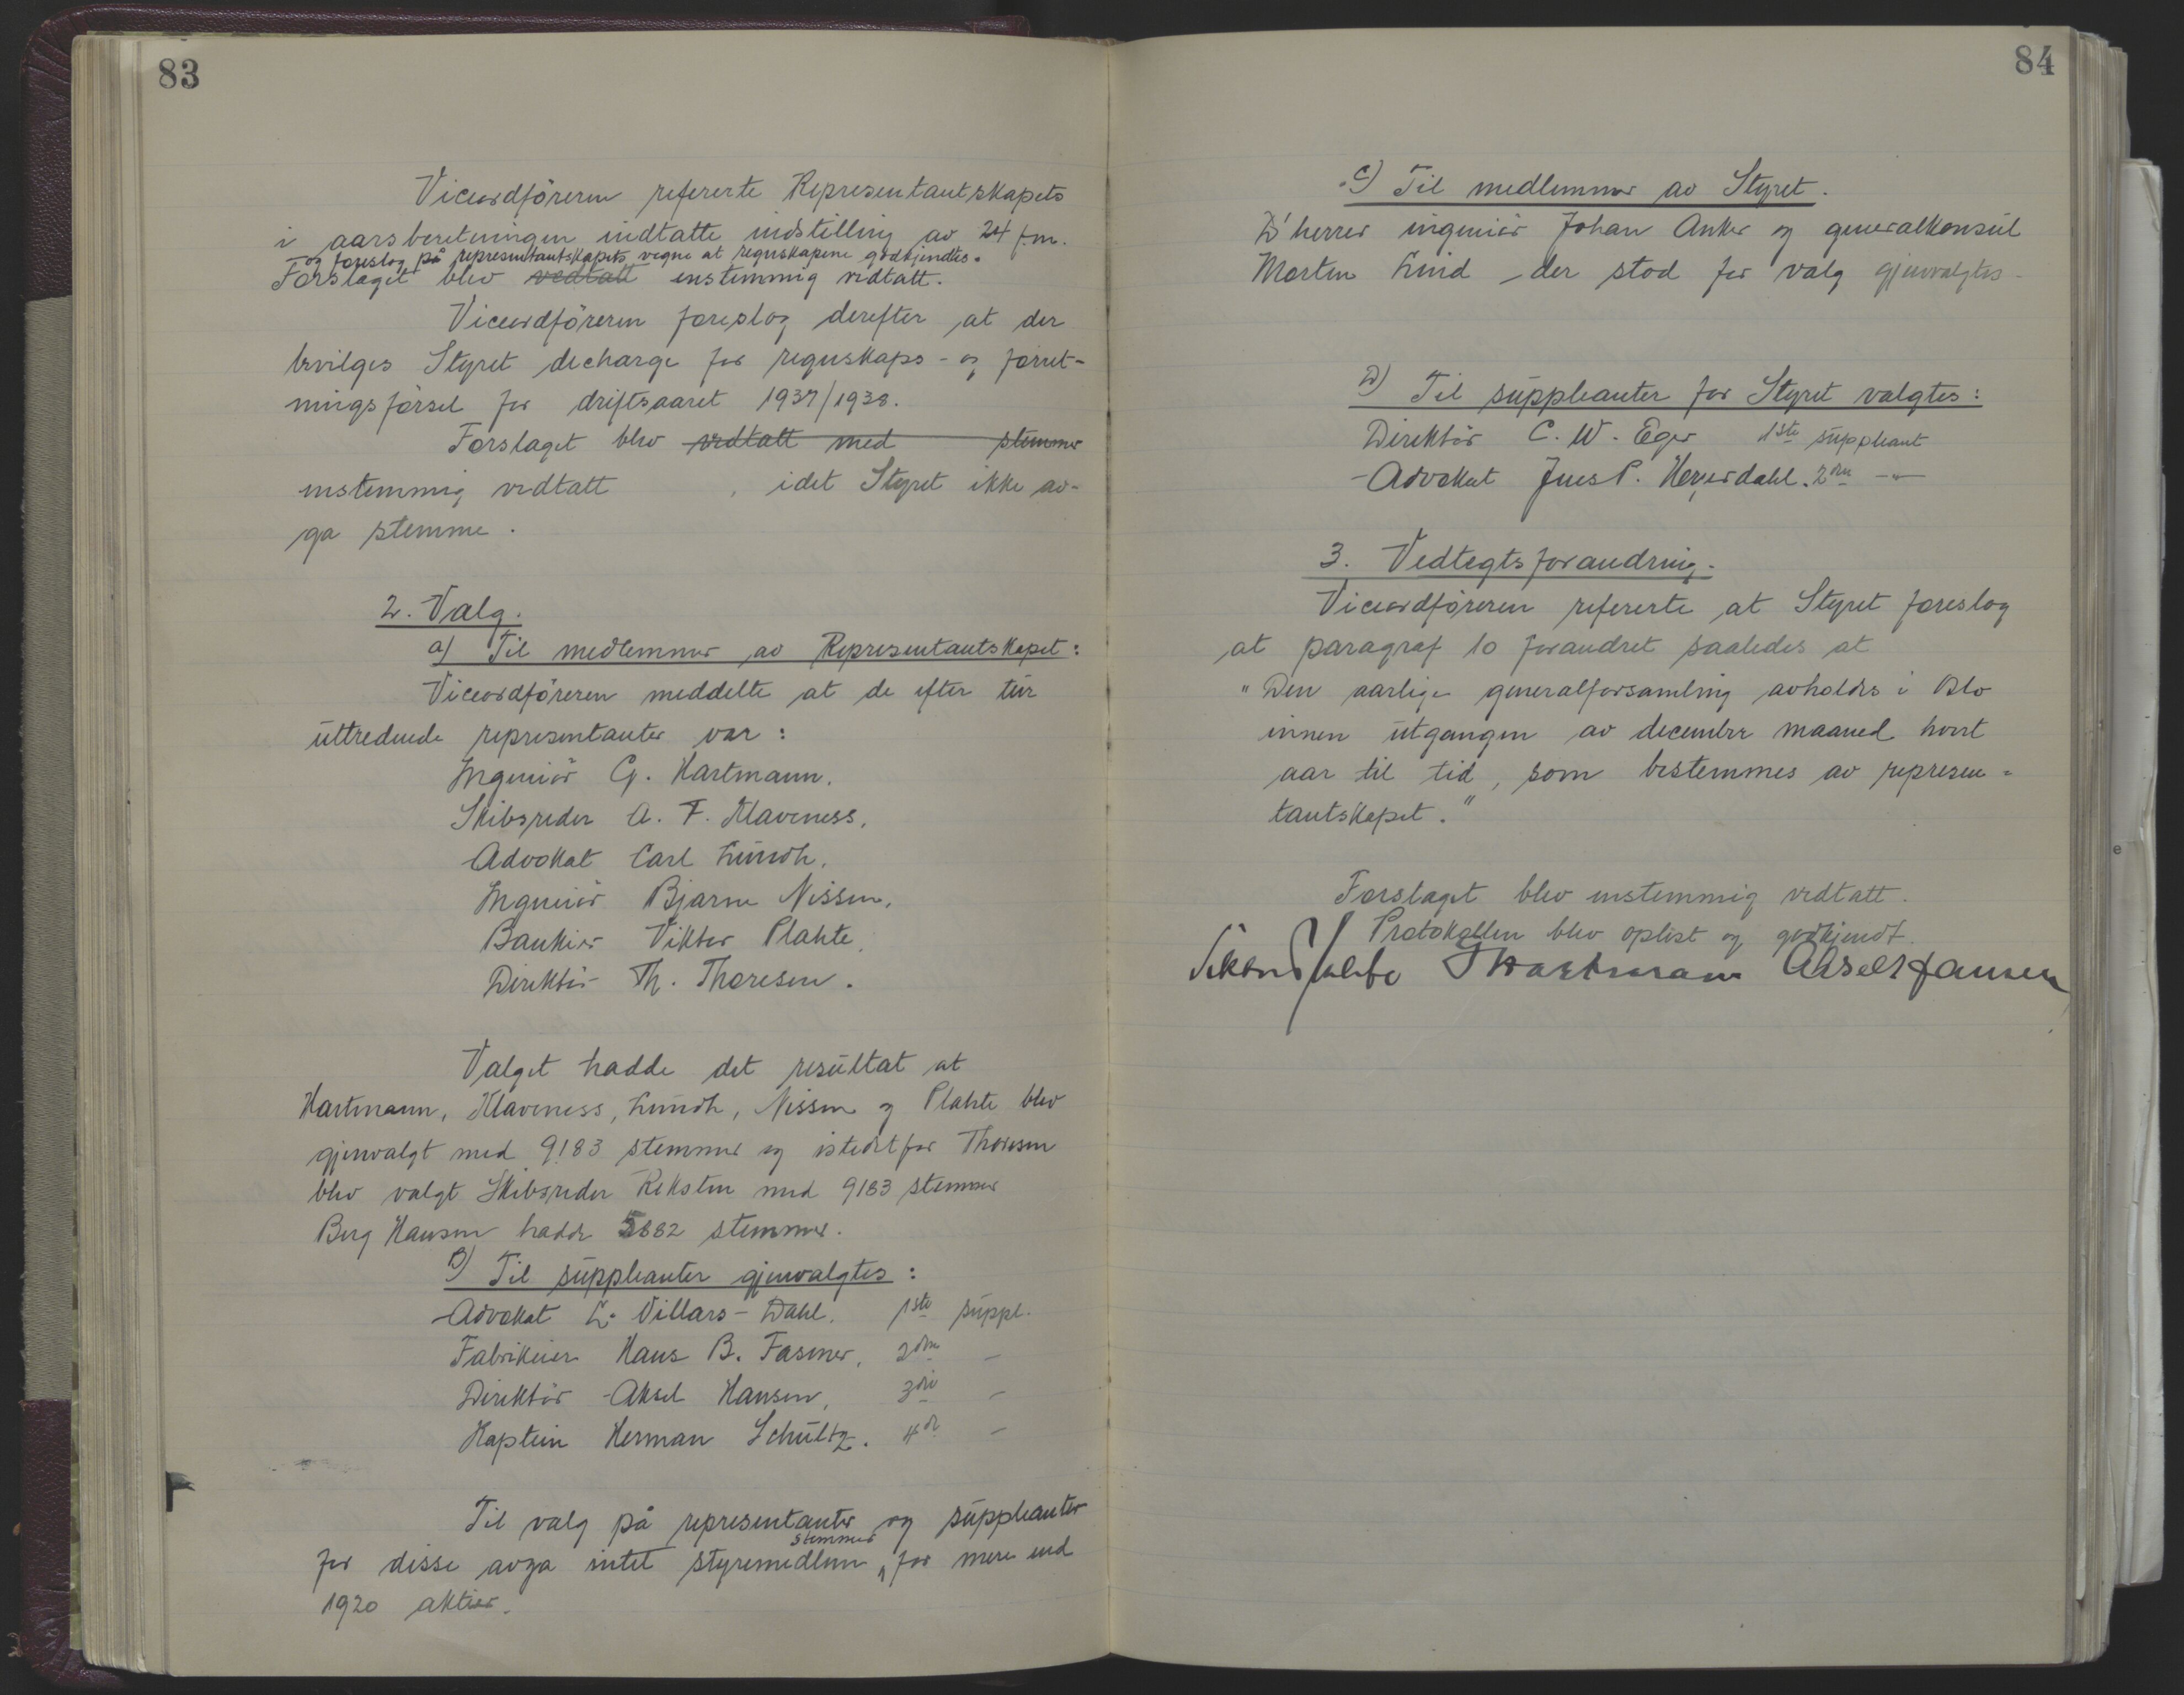 83
Viceordføreren refererte Representantskapets
i aarsberetningen indtatte indstilling av 24 fm.
og foreslog på representantskapets vegne at regnskapene godkjendtes.
Forslaget blev vedtatt enstemmig vedtatt.
Viceordføreren foreslog derefter at der
bevilges Styret decharge for regnskaps- og forret-
ningsførsel for driftsaaret 1937/1938.
Forslaget blev vedtatt med stemmer
enstemmig vedtatt , idet Styret ikke av-
ga stemme.
2. Valg.
a) Til medlemmer av Representantskapet:
Viceordføreren meddelte at de efter tur
uttredende representanter var:
Ingeniør G. Hartmann.
Skibsreder A. F. Klaveness,
Advokat Carl Lundh,
Ingeniør Bjarne Nissen,
Bankier Viktor Plahte,
Direktør Th. Thoresen.
Valget hadde det resultat at
Hartmann, Klaveness, Lundh, Nissen og Plahte blev
gjenvalgt med 9183 stemmer og istedetfor Thoresen
blev valgt Skibsreder Reksten med 9183 stemmer
Berg Hansen hadde 5882 stemmer.
B) Til suppleanter gjenvalgtes:
Advokat L. Villars-Dahl. 1ste suppl.
Fabrikeier Hans B. Fasmer, 2den -
Direktør Aksel Hansen, 3die -
Kaptein Herman Schultz. 4de -
Til valg på representanter og suppleanter
for disse avga intet styremedlem stemmer for mere end
1920 aktier.
84
c) Til medlemmer av Styret.
D'herrer ingeniør Johan Anker og generalkonsul
Morten Lind - der stod for valg gjenvalgtes -
D) Til suppleanter for Styret valgtes:
Direktør C. W. Eger 1ste suppleant
Advokat Jens P. Heyerdahl. 2den -"-
3. Vedtegtsforandring.
Viceordføreren refererte at Styret foreslog
at paragraf 10 forandret saaledes at
"Den aarlige generalforsamling avholdes i Oslo
innen utgangen av december maaned hvert
aar til tid, som bestemmes av represen=
tantskapet."
Forslaget blev enstemmig vedtatt.
Protokollen blev oplest og godkjendt.
Viktor Plahte Hartmann Aksel Hansen